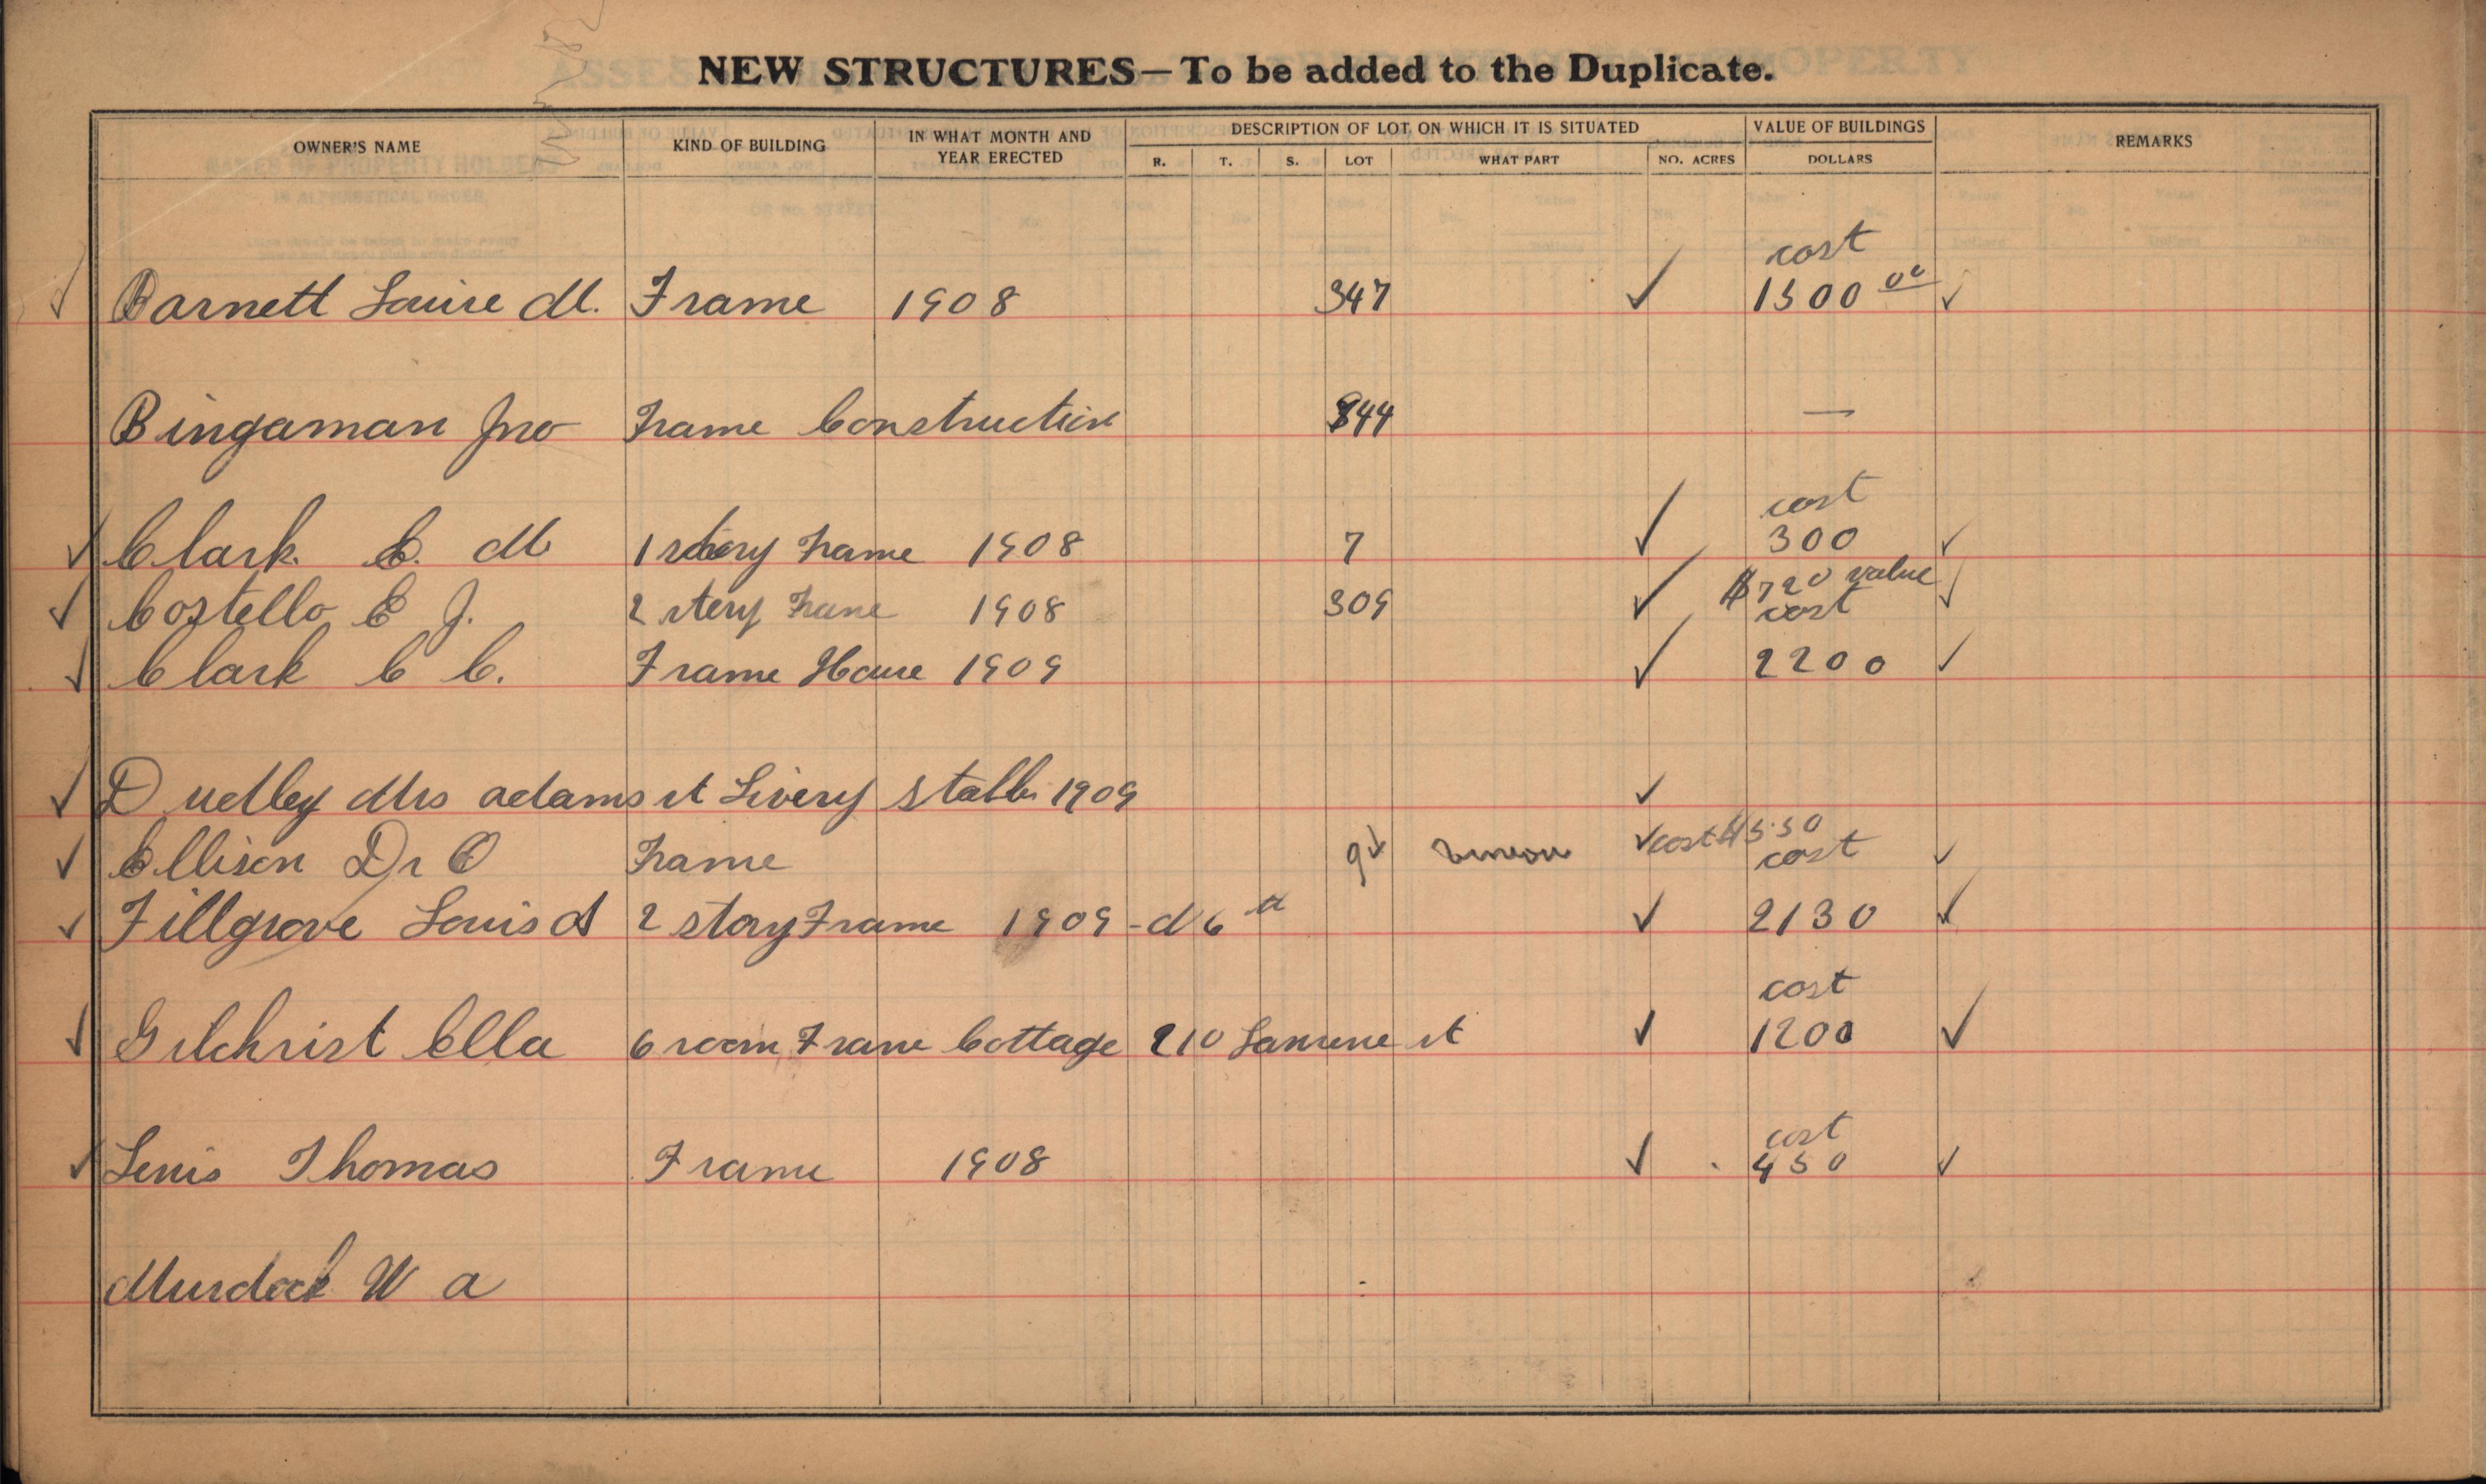 NEW STRUCTURES—To be added to the Duplicate.
OWNER'S NAME KIND OF BUILDING IN WHAT MONTH AND YEAR ERECTED DESCRIPTION OF LOT ON WHICH IT IS SITUATED VALUE OF BUILDINGS REMARKS
R. T. S. LOT WHAT PART NO. ACRES DOLLARS
cost
✓ Barnett Louise M. Frame 1908 347 ✓ 1500 00 ✓
Bingaman Jno Frame Construction 844 —
cost
✓ Clark E. M 1 story Frame 1908 7 ✓ 300 ✓
$720 value
✓ Costello E J. 2 story Frame 1908 309 ✓ cost ✓
✓ Clark C C. Frame House 1909 ✓ 2200 ✓
✓ Dudley Mrs adams st Livery stable 1909 ✓
✓ Ellison Dr O Frame 9 ✓ ✓ cost cost ✓
✓ Fillgrove Louis A 2 story Frame 1909 - d 6th ✓ 2130 ✓
cost
✓ Gilchrist Ella 6 room Frame Cottage 210 st ✓ 1200 ✓
cost
✓ Lenis Thomas Frame 1908 ✓ 450 ✓
Murdock W a